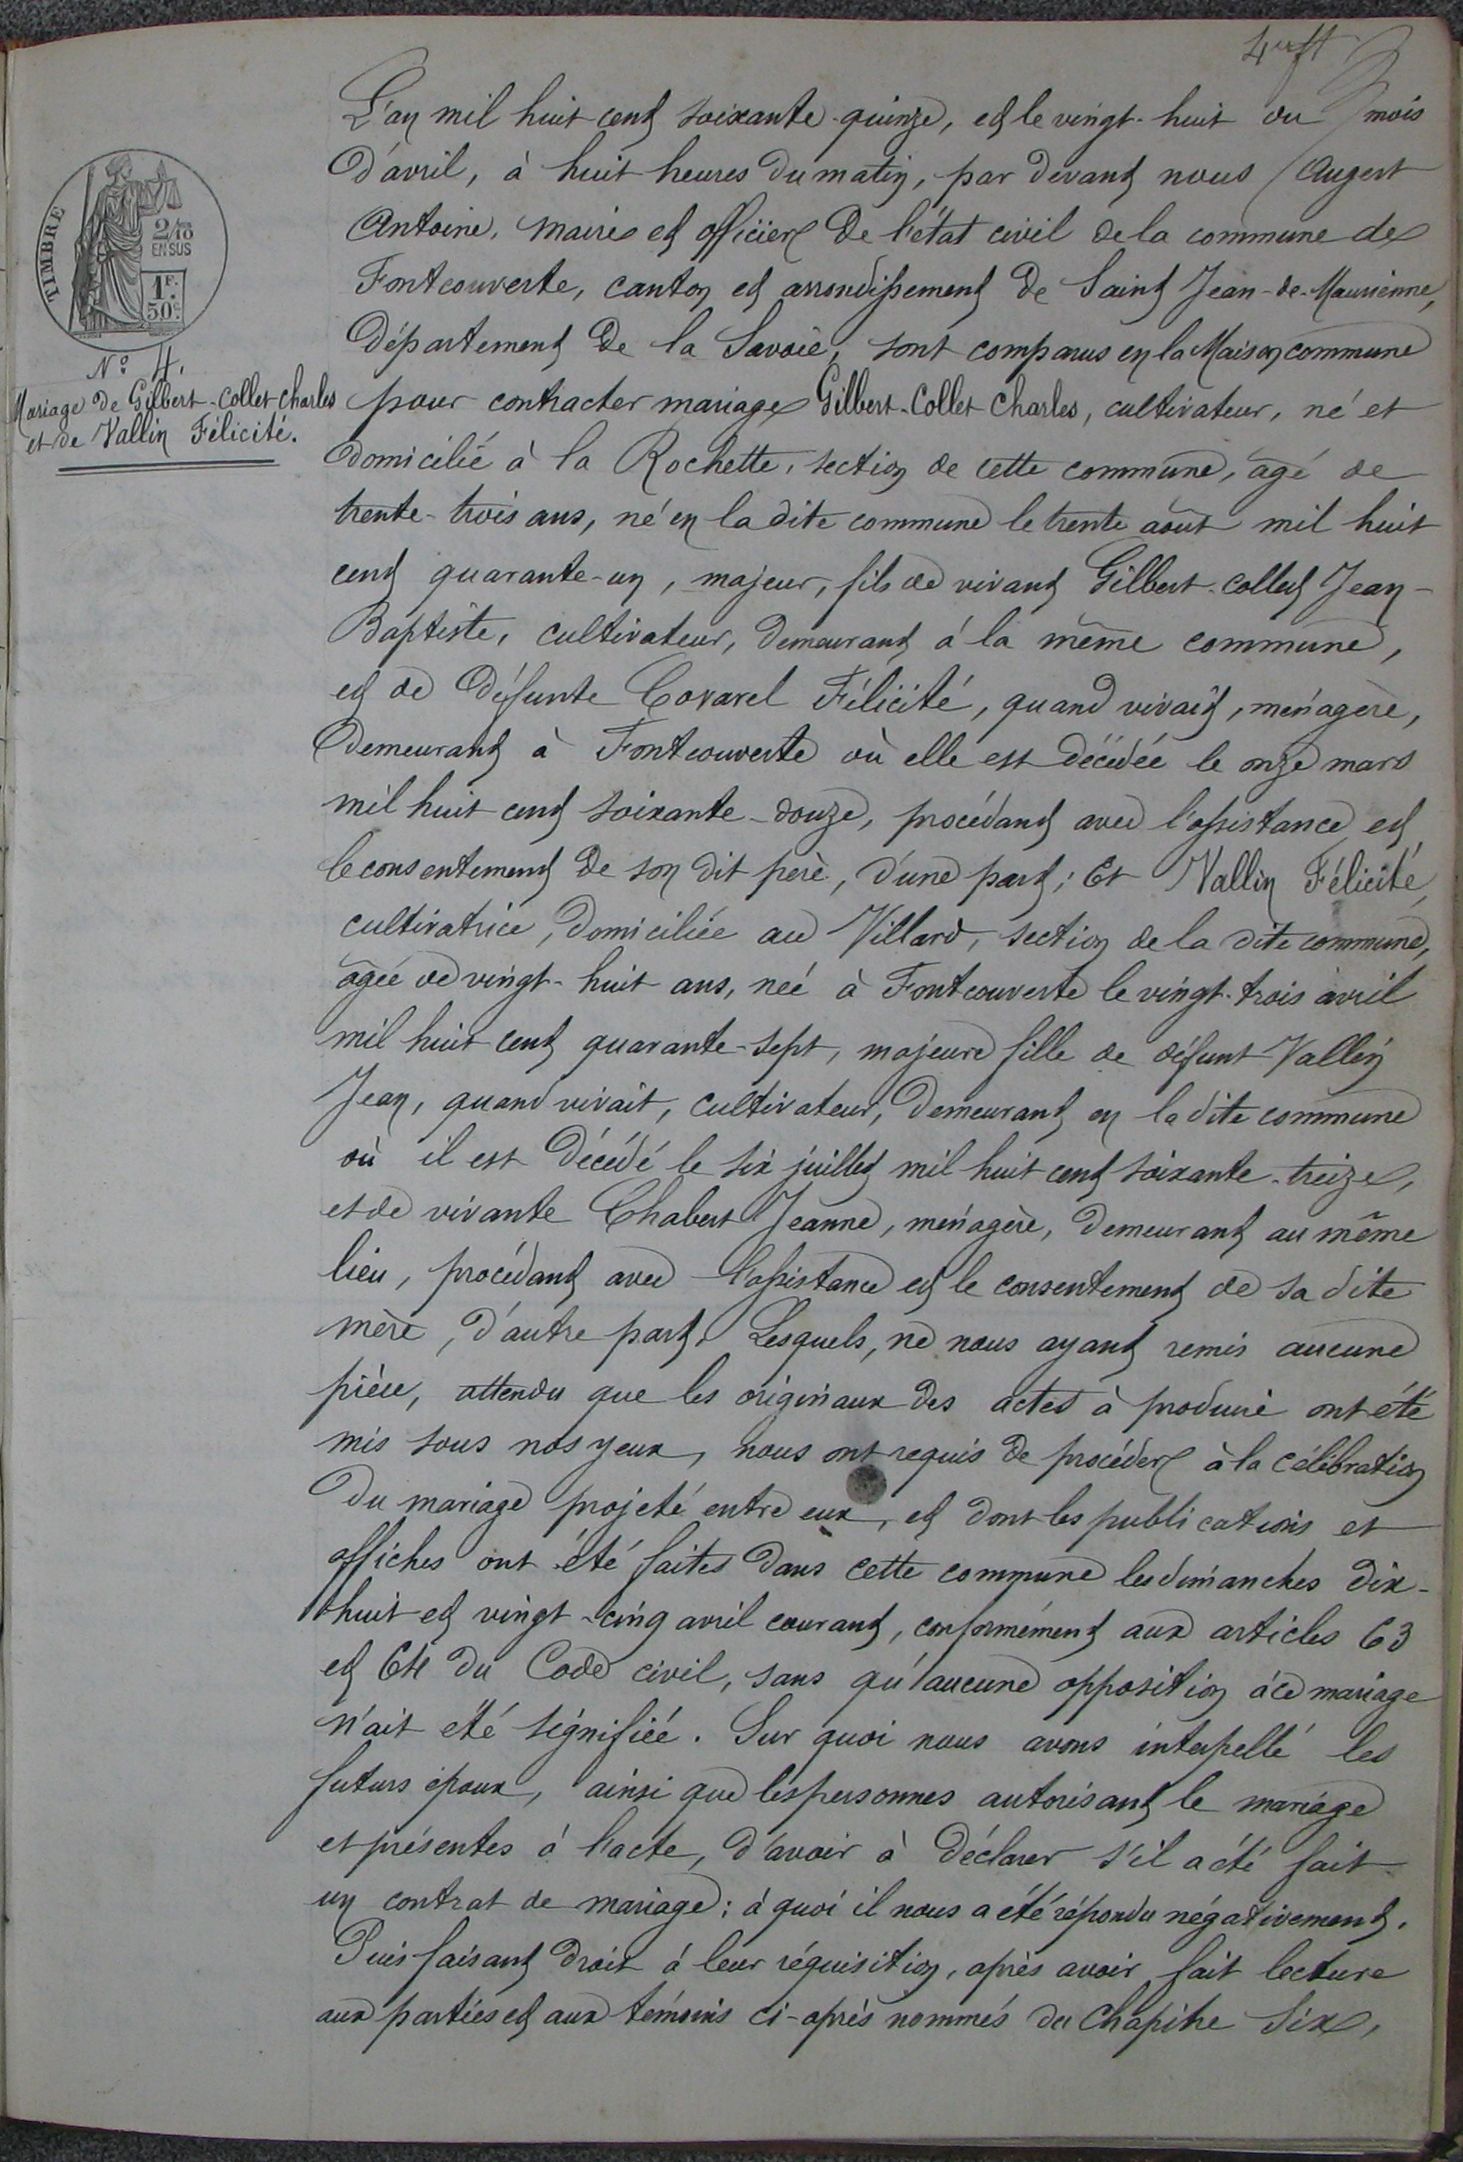 L'an mil huit cent soixante-quinze, et le vingt-huit du mois
D'avril, à huit heures du matin, par devant nous Augert
Antoine, maire et officier de l'état civil de la commune de
Fontcouverte, canton et arrondissement de Saint Jean-de-Maurienne,
Département de la Savoie, sont comparus en la Maison commune
pour contracter mariage Gilbert-Collet Charles, cultivateur, né et
domicilié à la Rochette, section de cette commune, âgé de
trente-trois ans, né en la dite commune le trente août mil huit
cent quarante-un, majeur, fils de vivant Gilbert-Collet Jean-
Baptiste, cultivateur, demeurant à la même commune,
et de défunte Covarel Félicité, quand vivait, ménagère,
Demeurant à Fontcouverte où elle est décédée le onze mars
mil huit cent soixante-douze, procédant avec l'assistance et
le consentement de son dit père, d'une part; Et Vallin Félicité,
cultivatrice, domiciliée au Villard, section de la dite commune,
âgée de vingt-huit ans, née à Fontcouverte le vingt-trois avril
mil huit cent quarante-sept, majeure fille de défunt Vallin
Jean, quand vivait, cultivateur, demeurant en la dite commune
où il est décédé le six juillet mil huit cent soixante-treize,
et de vivante Chabert Jeanne, ménagère, demeurant au même
lieu, procédant avec l'assistance et le consentement de sa dite
mère, d'autre part. Lesquels, ne nous ayant remis aucune
pièce, attendu que les originaux des actes à produire ont été
mis sous nos yeux, nous ont requis de procéder à la célébration
Du mariage projeté entre eux, et dont les publications et
affiches ont été faites dans cette commune les dimanches dix-
huit et vingt-cinq avril courant, conformément aux articles 63
et 64 du Code civil, sans qu'aucune opposition à ce mariage
n'ait été signifiée. Sur quoi nous avons interpellé les
futurs époux, ainsi que les personnes autorisant le mariage
et présentes à l'acte, d'avoir à déclarer s'il a été fait
un contrat de mariage; à quoi il nous a été répondu négativement.
Puis faisant droit à leur réquisition, après avoir fait lecture
aux parties et aux témoins ci-après nommés du Chapitre Six,
TIMBRE
2/10
EN SUS
1F.
50C.
N° 4.
Mariage de Gilbert-Collet Charles
et de Vallin Félicité.